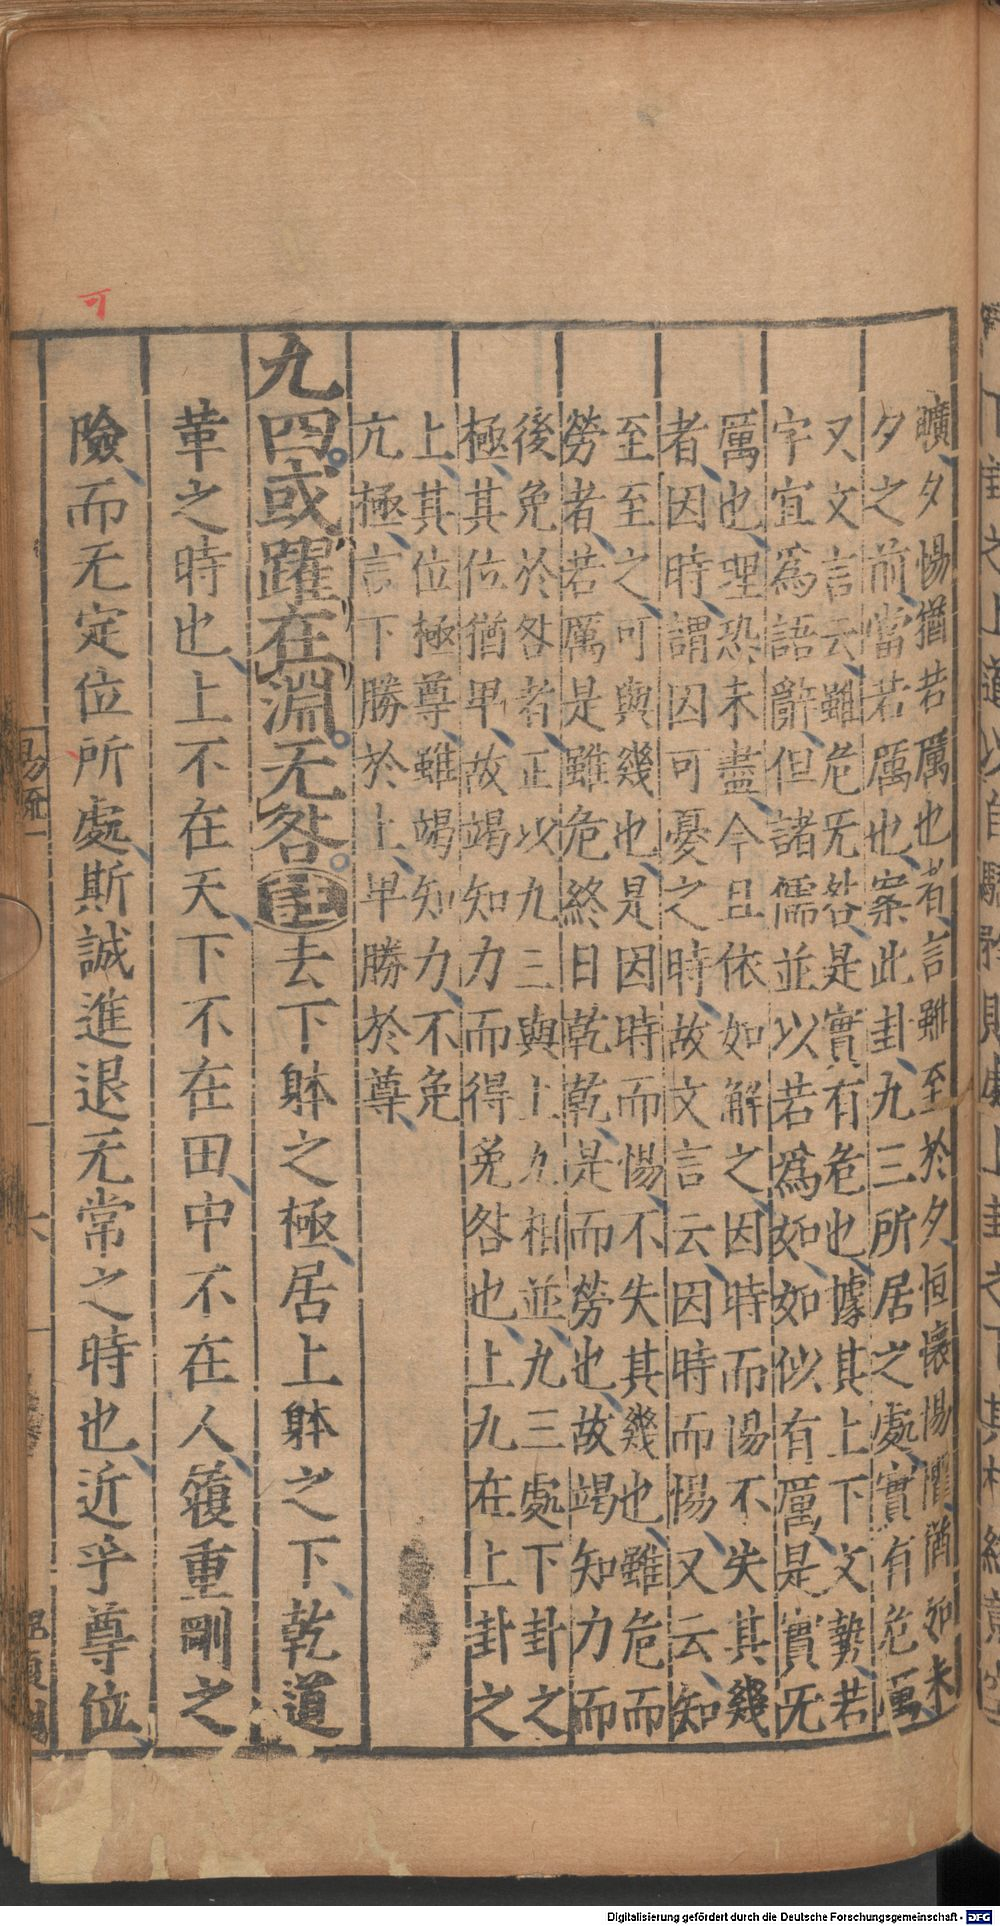 曠夕惕猶若厲也者言雖至於夕恒懷惕懼猶如未
夕之前當若厲也案此卦九三所居之處實有危厲
又文言云雖危无咎是實有危也據其上下文勢若
字宜爲語辭但諸儒並以若爲如如似有厲是實无
厲也理恐未盡今且依如解之因時而惕不失其幾
者因時謂因可憂之時故文言云因時而惕又云知
至至之可與幾也是因時而惕不失其幾也雖危而
勞者若厲是雖危終日乾乾是而勞也故竭知力而
後免於咎者正以九三與上九相並九三處下卦之
極其位猶卑故竭知力而得免咎也上九在上卦之
上其位極尊雖竭知力不免
亢極言下勝於上卑勝於尊
九四或躍在淵无咎註去下躰之極居上躰之下乾道
革之時也上不在天下不在田中不在人履重剛之
險而无定位所處斯誠進退无常之時也近乎尊位
易疏一
六
可
Digitalisierung gefördert durch die Deutsche Forschungsgemeinschaft - DFG